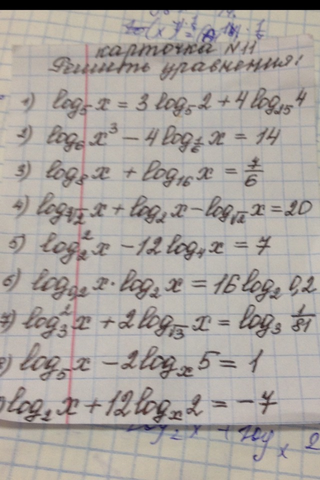 карточка N11
Решить уравнения:
1) log₅ x = 3 log₅ 2 + 4 log₂₅ 4
2) log₆ x³ − 4 log_{1/6} x = 14
3) log₈ x + log₁₆ x = 7/6
4) log_{∛2} x + log₂ x − log_{√2} x = 20
5) log₂² x − 12 log₄ x = 7
6) log₀,₂ x · log₂ x = 16 log₂ 0,2
7) log₃² x + 2 log_{√3} x = log₃ 1/81
) log₅ x − 2 log_x 5 = 1
) log₂ x + 12 log_x 2 = −7